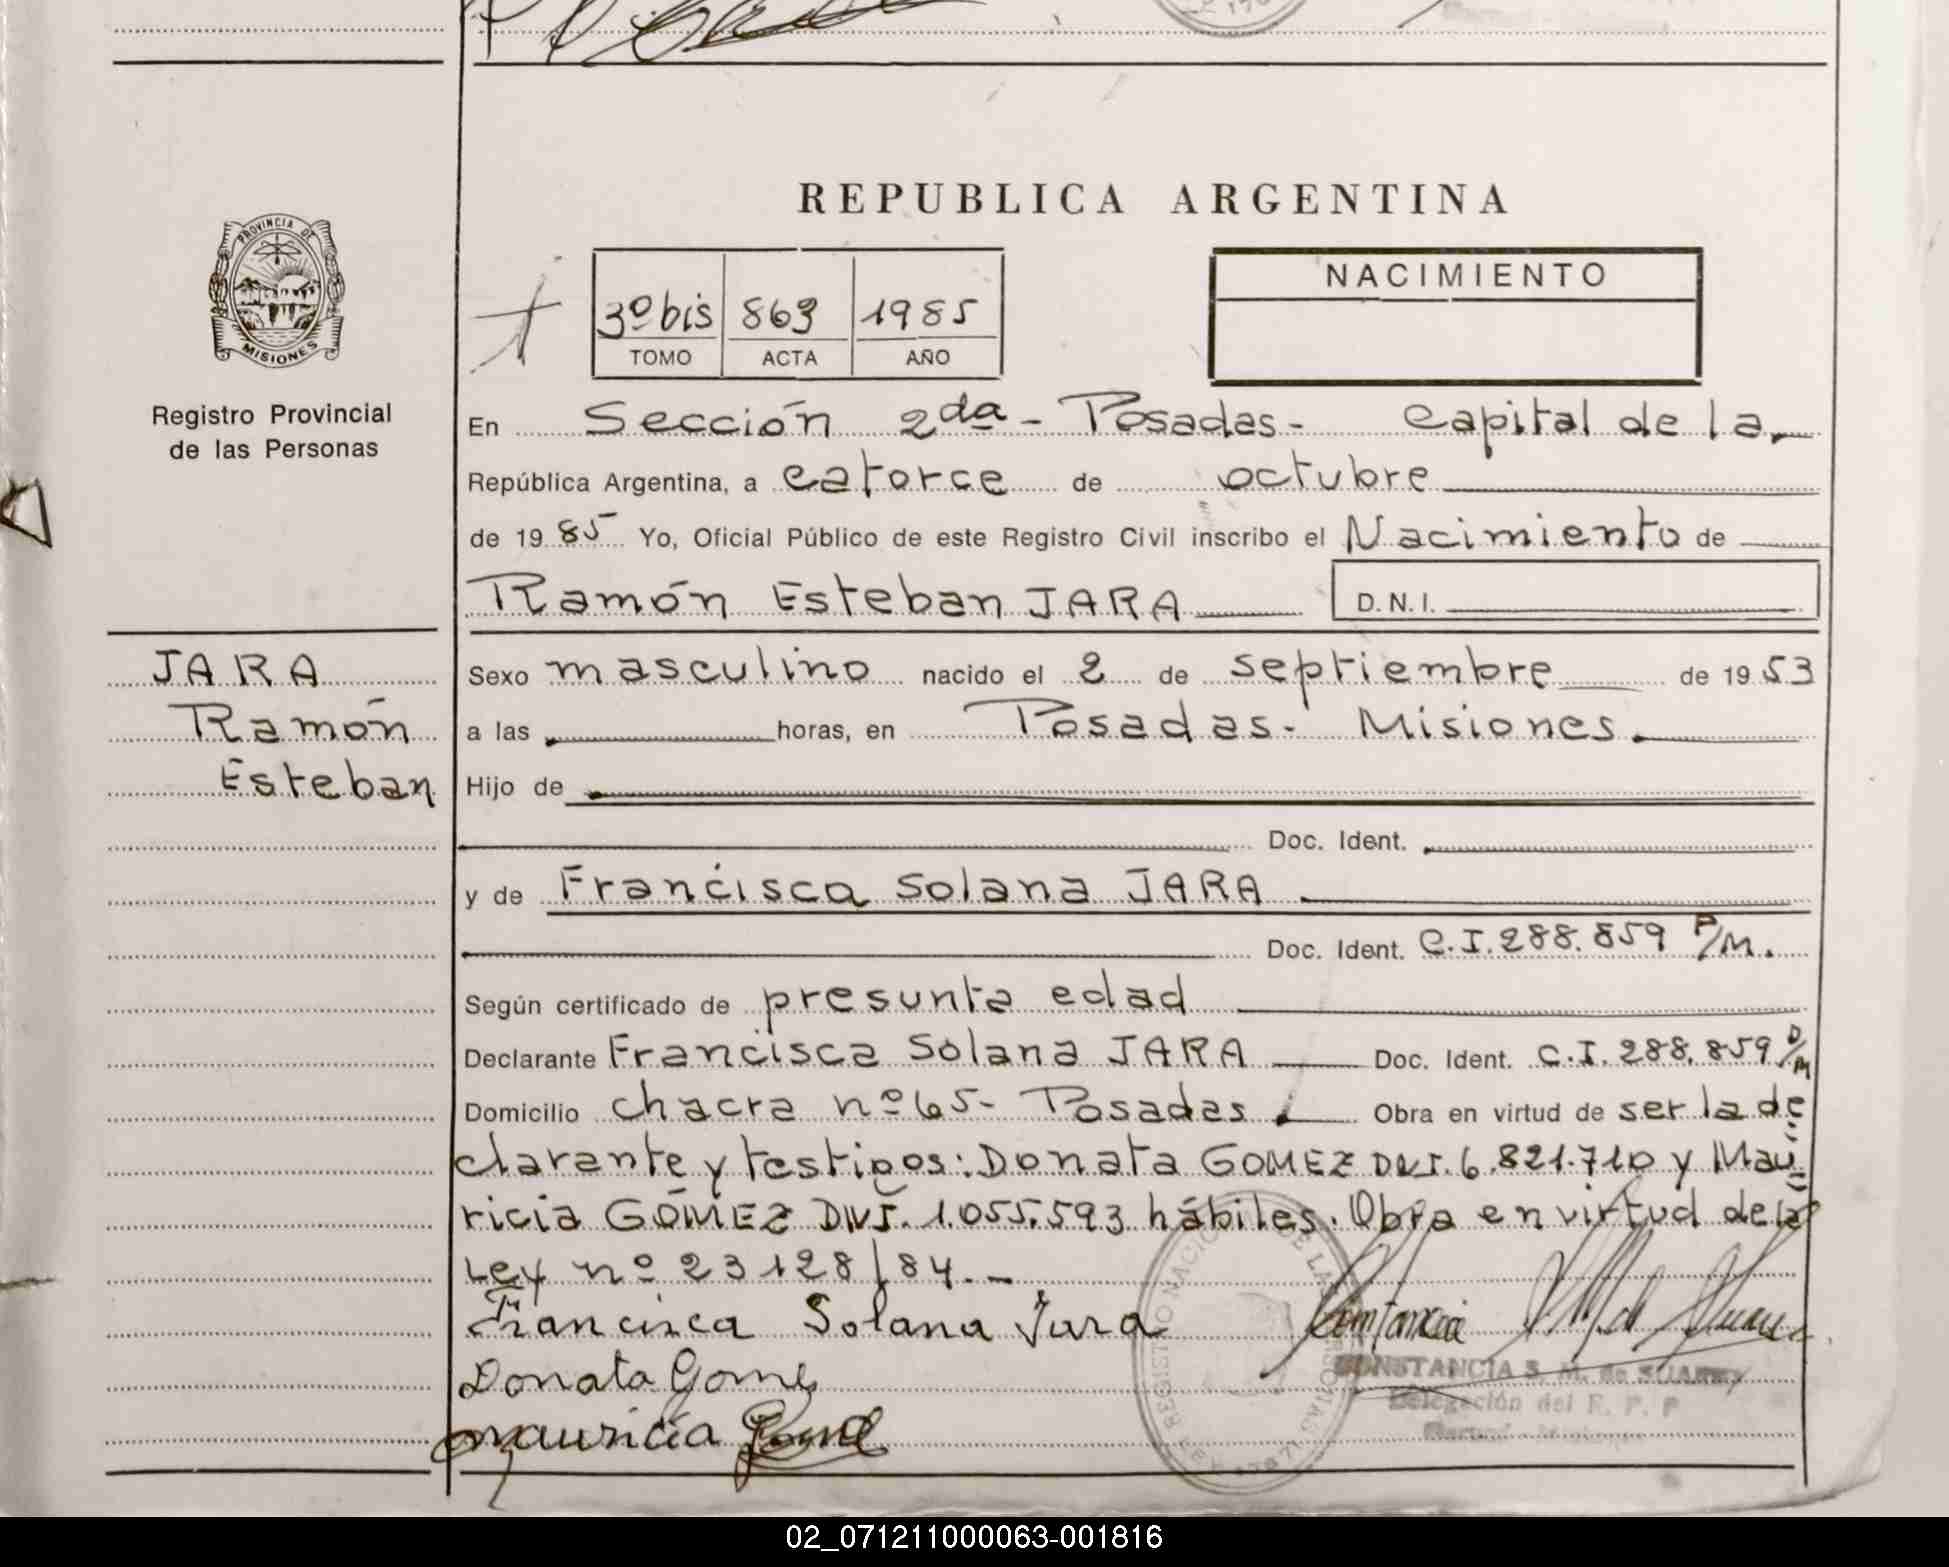 REPUBLICA ARGENTINA
PROVINCIA DE
MISIONES
Registro Provincial
de las Personas
3º bis 863 1985
TOMO ACTA AÑO
NACIMIENTO
En Sección 2da - Posadas - Capital de la
República Argentina, a catorce de octubre
de 1985 Yo, Oficial Público de este Registro Civil inscribo el Nacimiento de
Ramón Esteban JARA D.N.I.
JARA
Ramón
Esteban
Sexo masculino nacido el 2 de septiembre de 1953
a las horas, en Posadas - Misiones.
Hijo de
Doc. Ident.
y de Francisca Solana JARA
Doc. Ident. C.I. 288.859 P/M.
Según certificado de presunta edad
Declarante Francisca Solana JARA Doc. Ident. C.I. 288.859 P/M
Domicilio chacra nº 65 - Posadas. Obra en virtud de ser la de
clarante y testigos: Donata GOMEZ DNI. 6.821.710 y Mau=
ricia GÓMEZ DNI. 1.055.593 hábiles. Obra en virtud de la
Ley nº 23128/84.-
Francisca Solana Jara
Donata Gomez
Mauricia
Constancia
CONSTANCIA S. M. de SUAREZ
Delegación del R. P. P
02_071211000063-001816